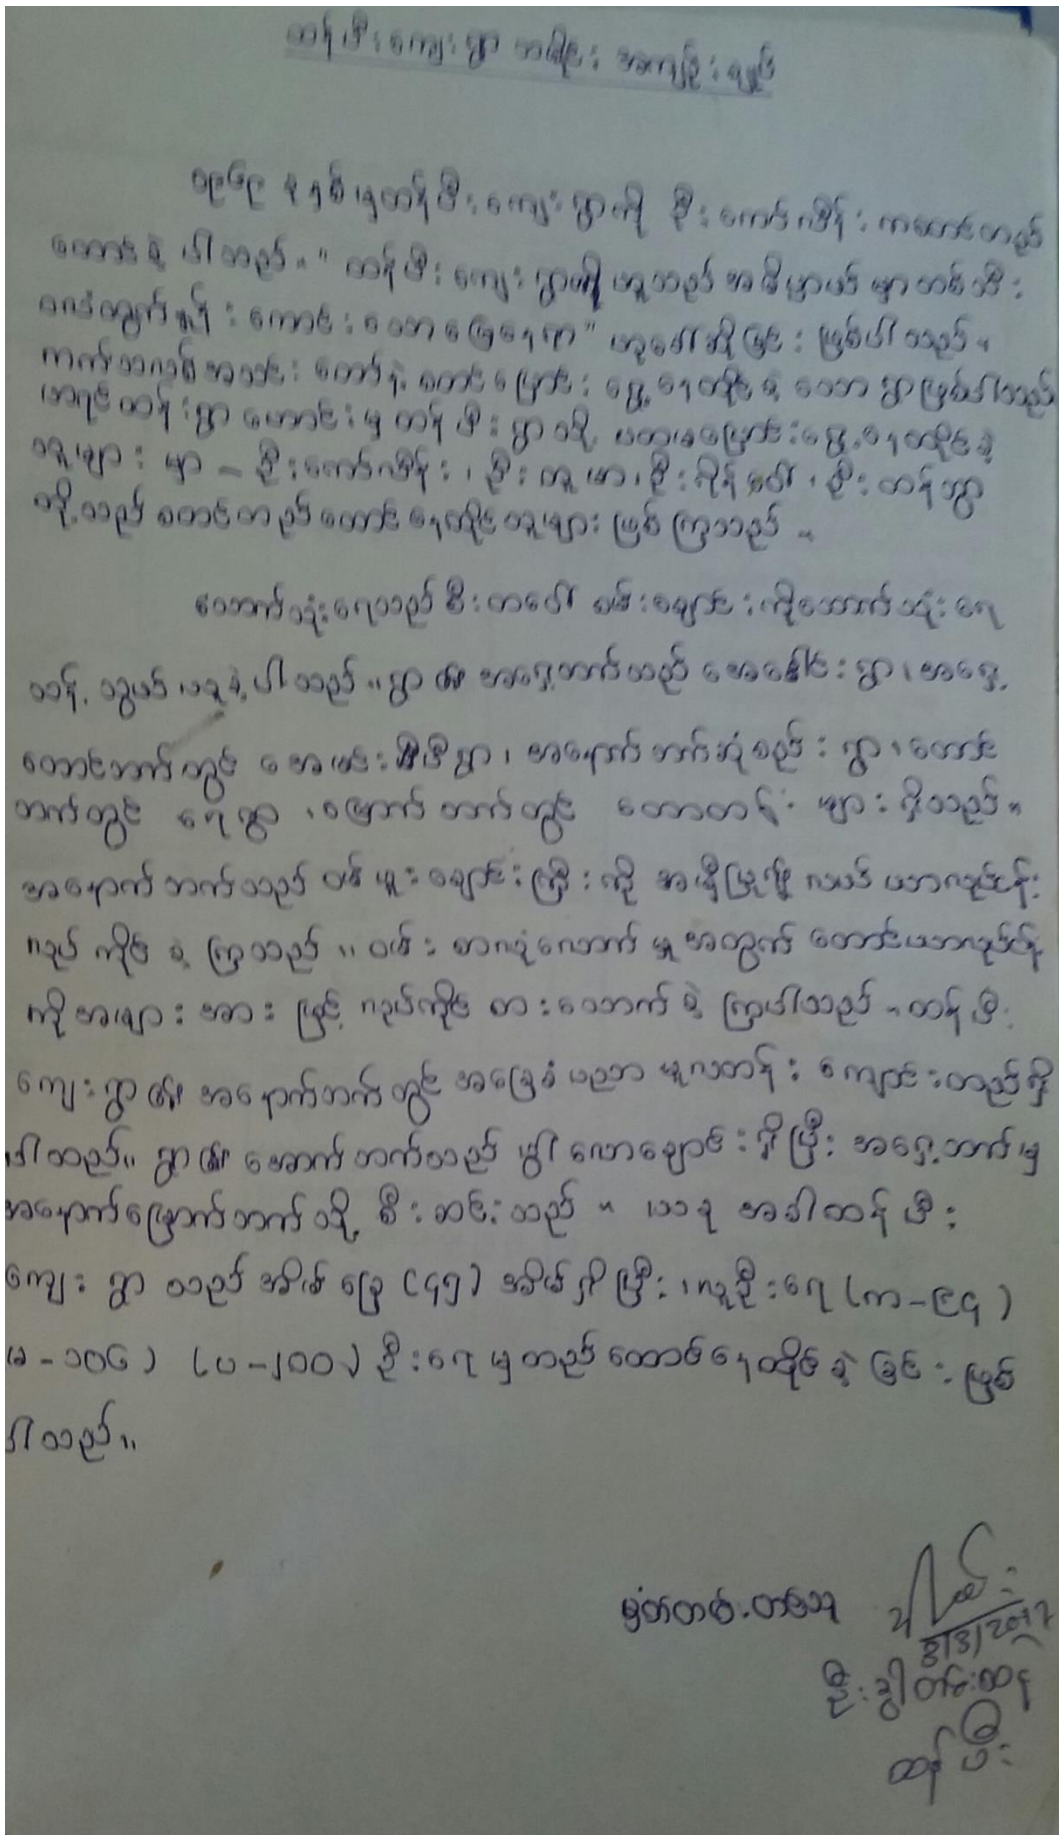 ထန်ဖီးကျေးရွာ သမိုင်း အကျဉ်းချုပ်
၁၉၆၉ ခုနှစ်၊ မှထန်ဖီးကျေးရွာကို ဦးကောင်လဲန်းကစောင်တည်
ထောင်ခဲ့ပါသည်။ "ထန်ဖီးကျေးရွာဟူသည် အဓိပ္ပာယ်မှာထစ်သီး
ကောင်းသောမြေနေရာ" ဟုခေါ်ဆိုခြင်း ဖြစ်ပါသည်။
ကက်သလစ်အသင်းတော်နဲ့ စတင်ပြောင်းရွှေ့နေထိုင်ခဲ့သောရွာဖြစ်ပါသည်
ထန်းရွာဟောင်းမှ ထန်ဖီးရွာသို့ ပထမပြောင်းရွှေ့နေထိုင်ခဲ့
သူများမှာ – ဦးကောင်လဲန်း၊ ဦး၊ ဦး၊ ဦးထန်
တို့သည် စတင်တည်ထောင်နေထိုင်သူများ ဖြစ်ကြသည်။
သောက်သုံးရေသည် စီးတပေါ် စမ်းချောင်းကိုသောက်သုံးရေ
သန့်သွယ်ယူခဲ့ပါသည်။ ရွာ၏ အရှေ့ဘက်သည် ရွာ၊ အရှေ့
တောင်ဘက်တွင် ရွာ၊ အနောက်ဘက်ဆုံစည်းရွာ၊ တောင်
ဘက်တွင် ရေရွာ၊ မြောက်ဘက်တွင် တောတန်းများရှိသည်။
အနောက်ဘက်သည် ချောင်းကြီးကို အမှီပြု၍ လယ်ယာလုပ်ငန်း
လုပ်ကိုင်ခဲ့ကြသည်။ ဝမ်းစာလုံလောက်မှုအတွက် တောင်ယာလုပ်ငန်း
ကိုအများအားဖြင့် လုပ်ကိုင်စားသောက်ခဲ့ကြပါသည်။ ထန်ဖီး
ကျေးရွာ၏ အနောက်ဘက်တွင် အခြေခံပညာမူလတန်းကျောင်းတည်ရှိ
ပါသည်။ ရွာ၏ အောက်ဘက်သည် ချောင်းရှိပြီး အရှေ့ဘက်မှ
အနောက်မြောက်ဘက်သို့ စီးဆင်းသည်။ ယခုအခါထန်ဖီး
ကျေးရွာသည် အိမ်ခြေ (၄၅) အိမ်ရှိပြီး၊ လူဦးရေ (က–၉၄)
(မ–၁၀၆) (ပ–၂၀၀) ဦးရေမှတည်ထောင်နေထိုင်ခဲ့ခြင်းဖြစ်
ပါသည်။
မှတ်တမ်းတင်သူ
8/3/2017
ထန်ဖီး